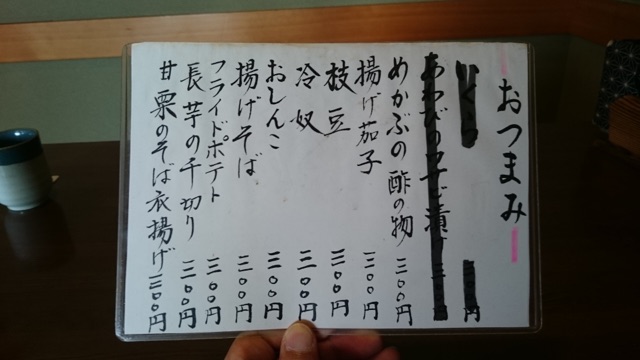 おつまみ
いくら 円
めかぶの酢の物 三〇〇円
揚げ茄子 三〇〇円
枝豆 三〇〇円
冷奴 三〇〇円
おしんこ 三〇〇円
揚げそば 三〇〇円
フライドポテト 三〇〇円
長芋の千切り 三〇〇円
甘栗のそば衣揚げ 三〇〇円